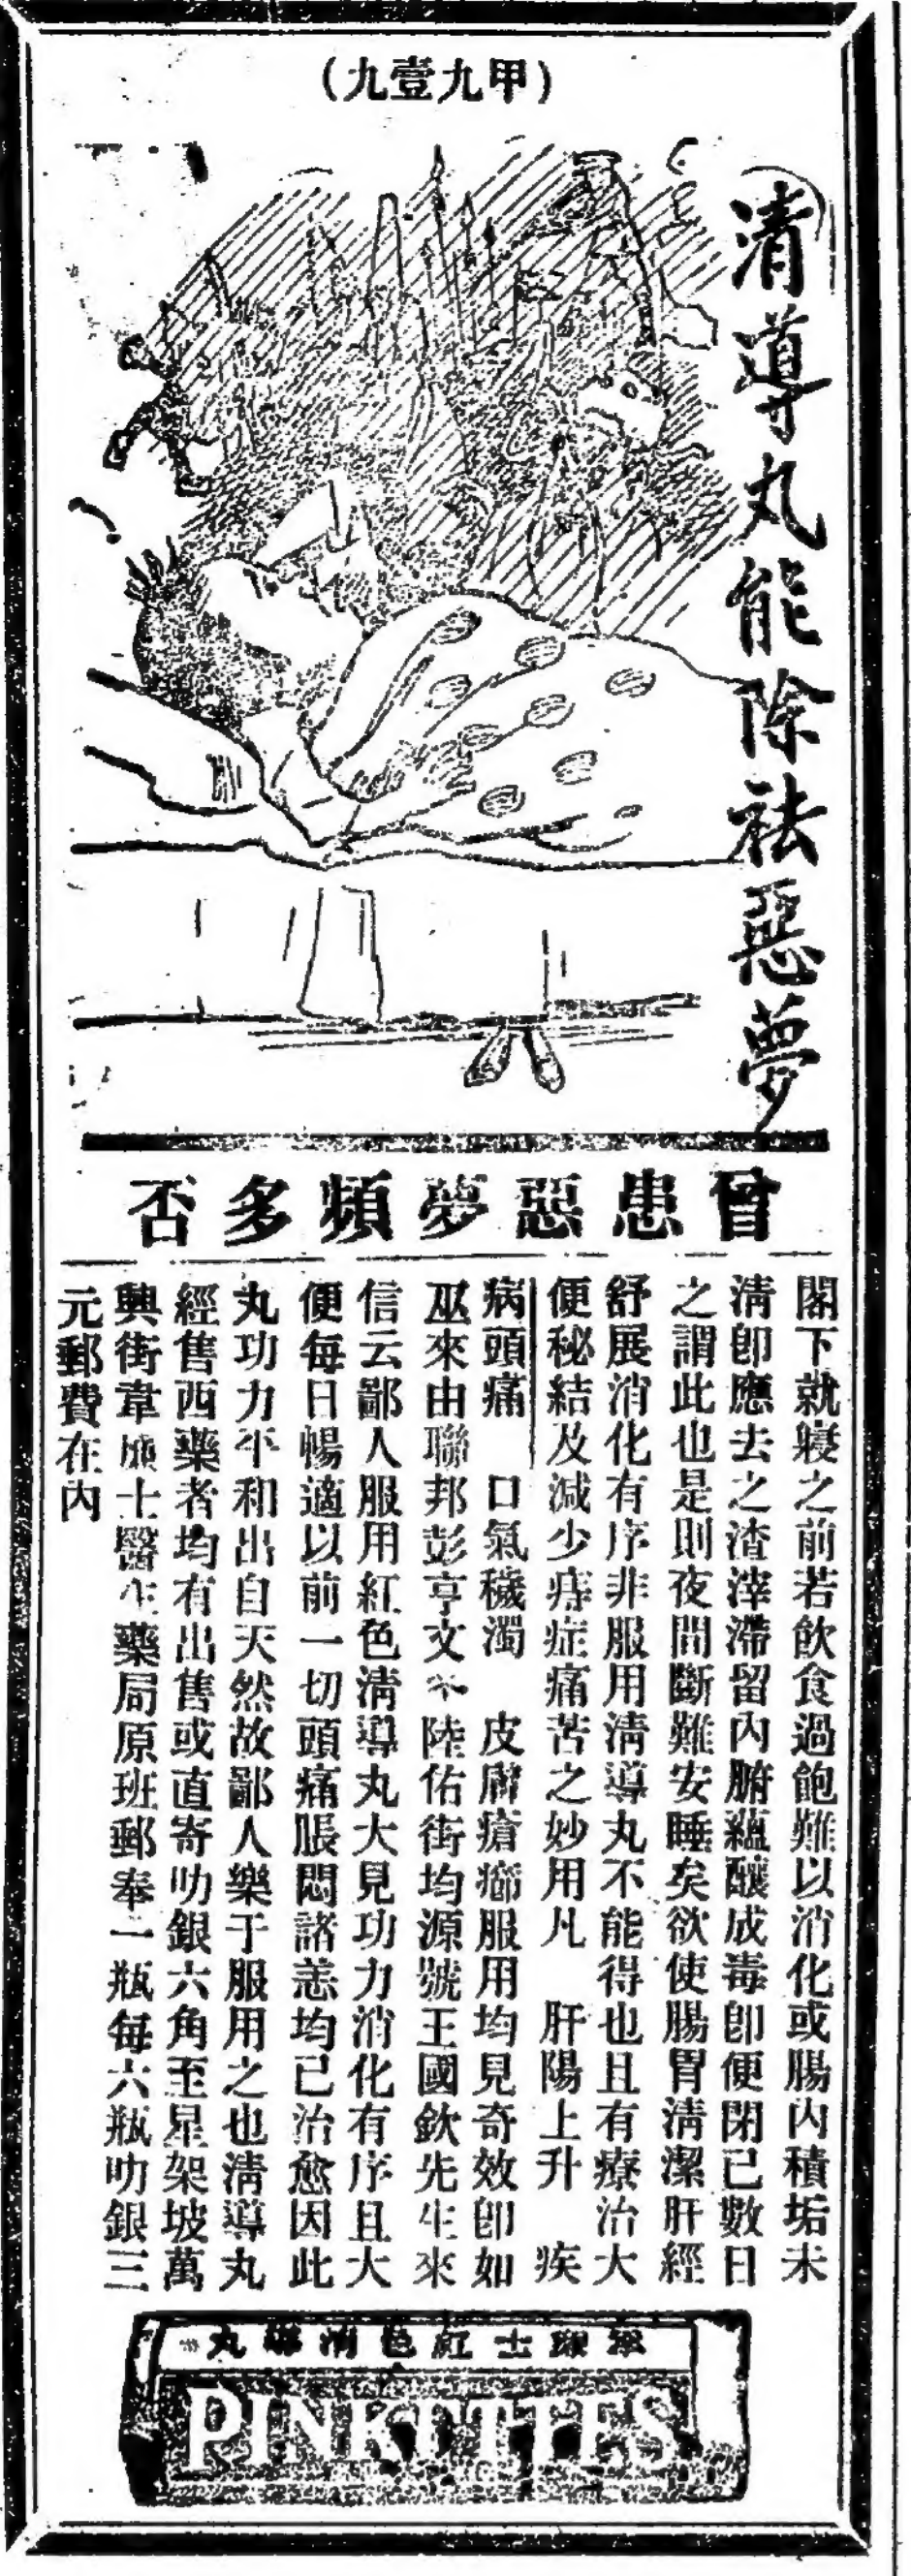 (甲九壹九)
清導丸能除祛惡夢
曾患惡夢頻多否
閣下就寢之前若飲食過飽難以消化或腸內積垢未
清卽應去之渣滓滯留內腑蘊釀成毒卽便閉已數日
之謂此也是則夜間斷難安睡矣欲使腸胃清潔肝經
舒展消化有序非服用清導丸不能得也且有療治大
便秘結及減少痔症痛苦之妙用凡 肝陽上升 疾
病頭痛 口氣穢濁 皮膚瘡癤服用均見奇效卽如
巫來由聯邦彭亨文冬陸佑街均源號王國欽先生來
信云鄙人服用紅色清導丸大見功力消化有序且大
便每日暢適以前一切頭痛脹悶諸恙均已治愈因此
丸功力平和出自天然故鄙人樂于服用之也清導丸
經售西藥者均有出售或直寄叻銀六角至星架坡萬
興街韋廉士醫生藥局原班郵奉一瓶每六瓶叻銀三
元郵費在內
士紅色清導丸
PINKETTES